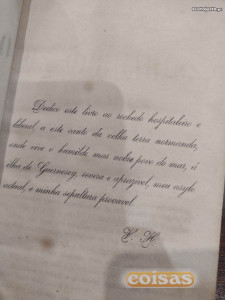 Dedico este livro ao rochedo hospitaleiro e
liberal, a este canto da velha terra normanda,
onde vive o humilde mas nobre povo do mar, á
ilha de Guernesey, severa e aprazivel, meu asylo
actual, e minha sepultura provavel
V. H
coisas